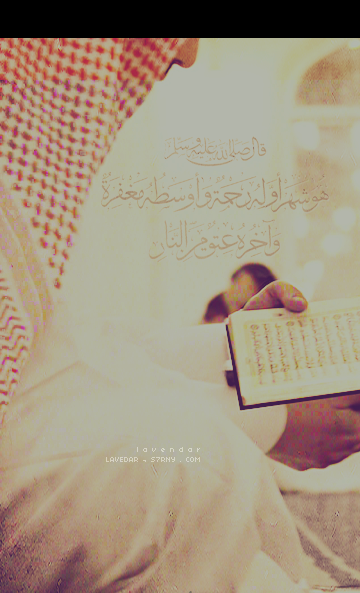 قال صلى الله عليه وسلم
هو شهر أوله رحمة وأوسطه مغفرة
وآخره عتق من النار
lavendar
LAVEDAR - S7RNY . COM